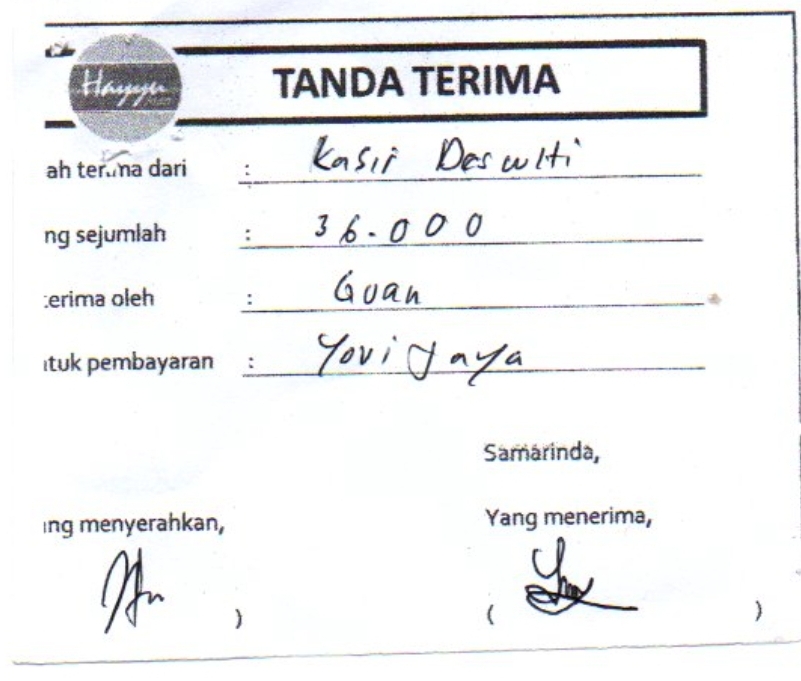 Hayyu
TANDA TERIMA
ah terima dari : Kasir Deswiti
ng sejumlah : 36.000
terima oleh : Guan
ntuk pembayaran : Yovi Jaya
Samarinda,
ang menyerahkan,
Yang menerima,
)
( )